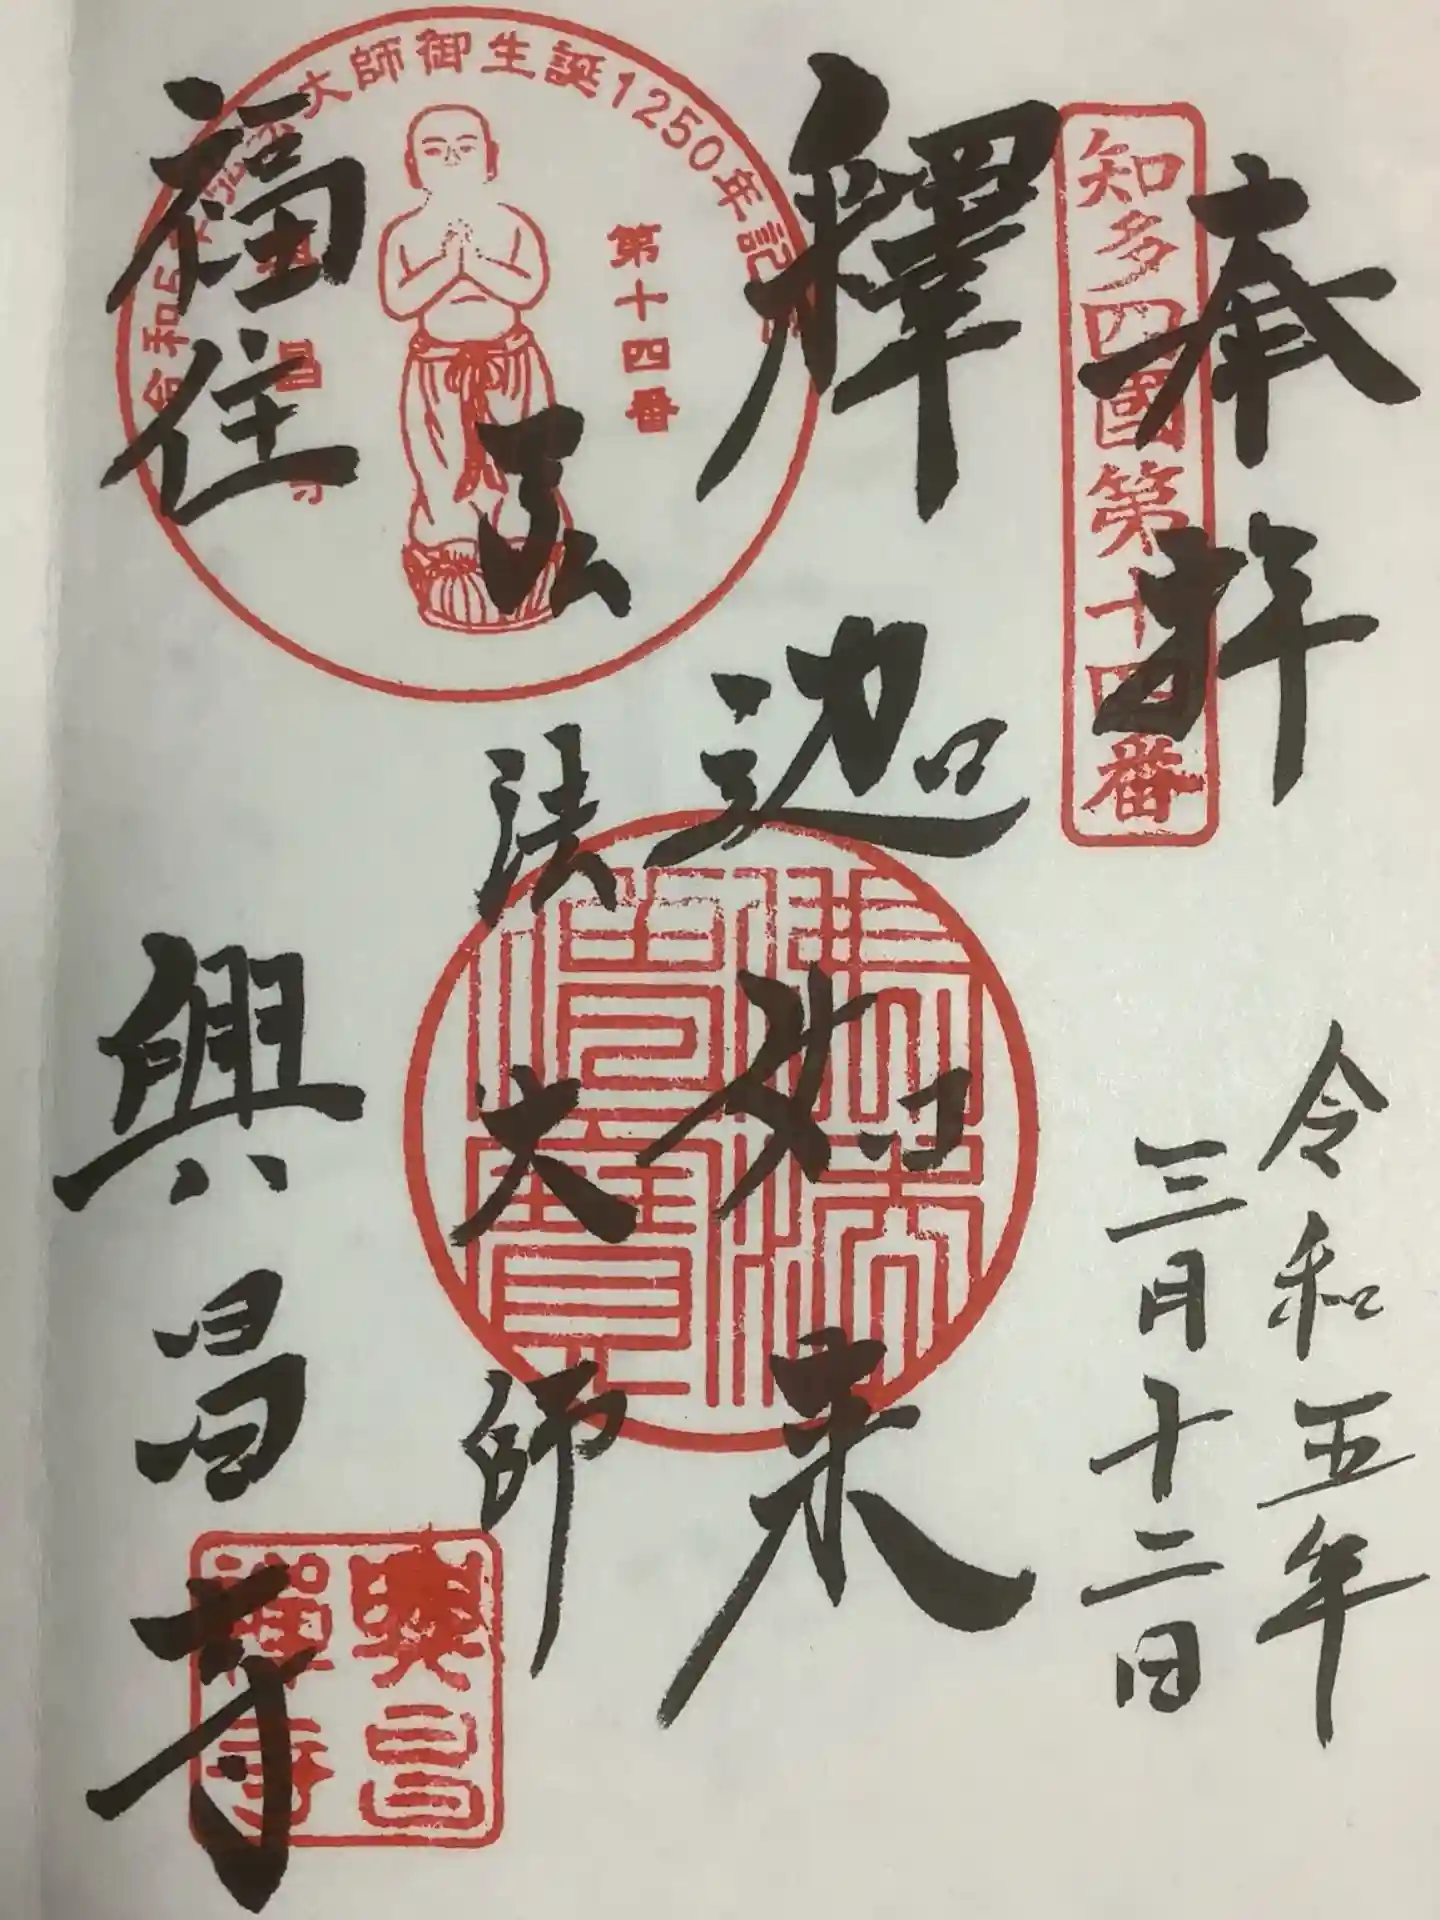 奉拝
知多四國第十四番
令和五年
三月十二日
釋迦如来
弘法大師
福住
興昌寺
大師御生誕1250年記
第十四番
佛法僧寶
興昌
禅寺